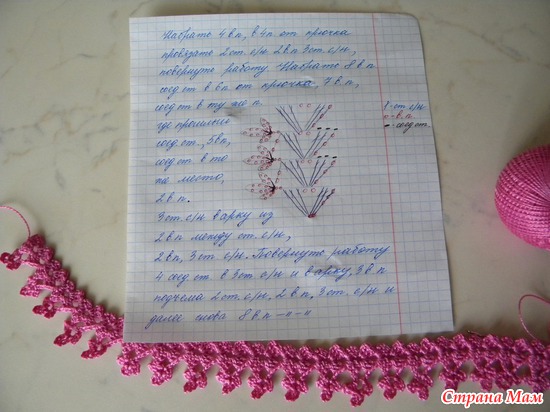 Набрать 4 вп, в 4п от крючка
провязать 2 ст.с/н 2 вп 3 ст.с/н,
повернуть работу. Набрать 8 вп
соед ст в 6п от крючка, 7 вп,
соед ст в ту же п.
где прошлый
соед.ст., 5 вп,
соед ст в то
же место,
2 вп.
3 ст.с/н в арку из
2 вп между ст.с/н,
2 вп, 3 ст.с/н. Повернуть работу
4 соед ст в 3 ст.с/н и в арку, 3 вп
подъема 2 ст.с/н, 2 вп, 3 ст.с/н и
далее снова 8 вп -"-"
- ст. с/н
- в.п
- соед ст.
Страна Мам